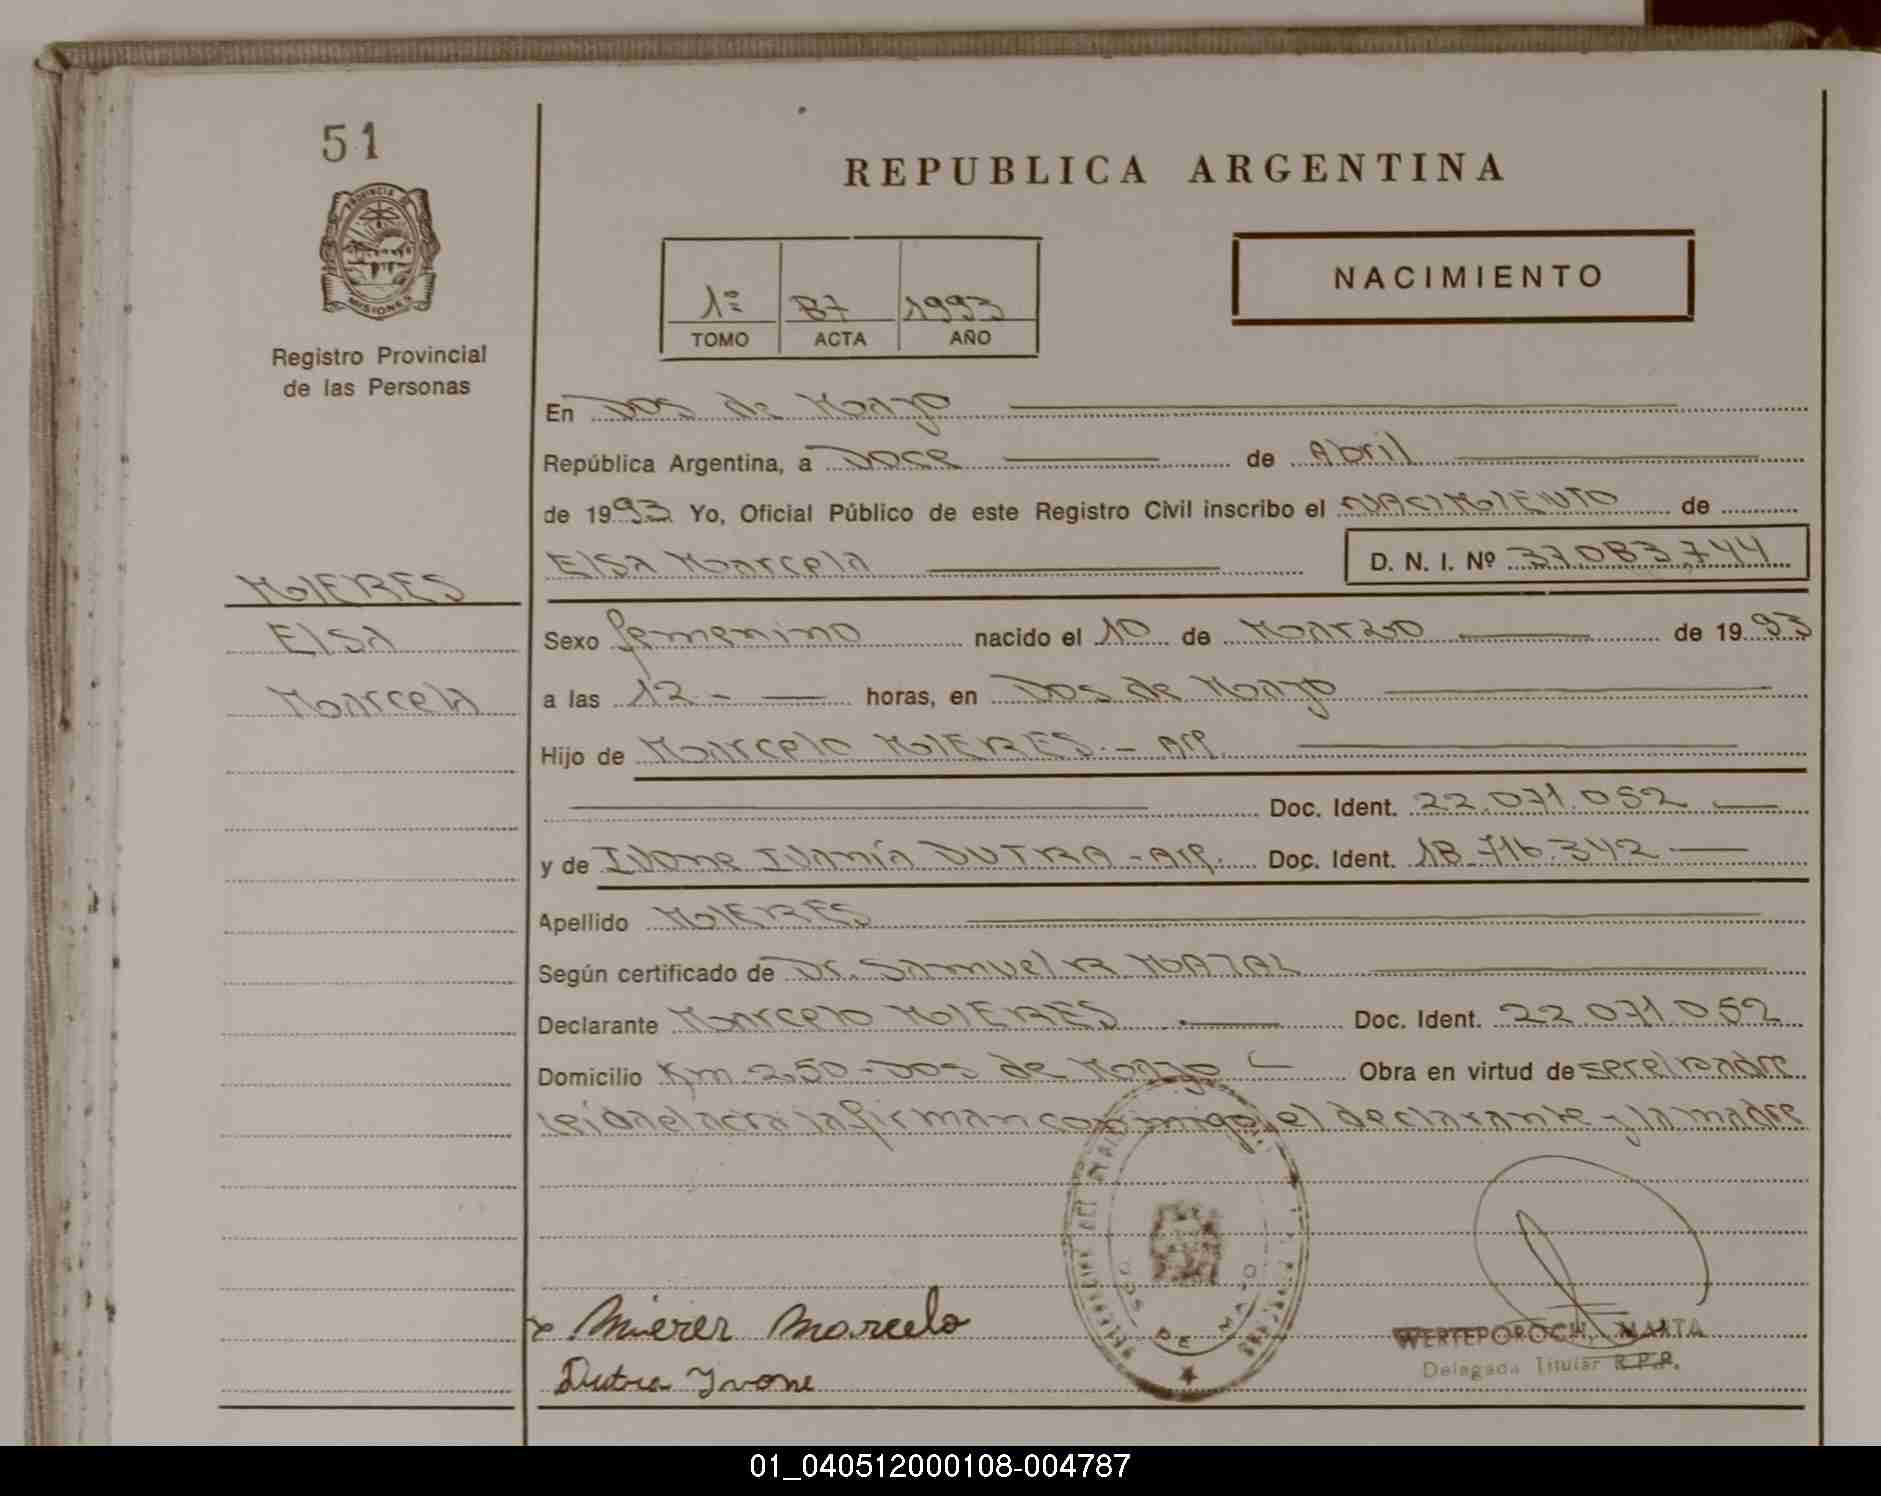 51
REPUBLICA ARGENTINA
PROVINCIA DE MISIONES
NACIMIENTO
1º 87 1993
TOMO ACTA AÑO
Registro Provincial
de las Personas
En Dos de Mayo
República Argentina, a Doce de Abril
de 1993 Yo, Oficial Público de este Registro Civil inscribo el NACIMIENTO de
Elsa Marcela D. N. I. Nº 37.083.744
MIERES
Elsa
Marcela
Sexo femenino nacido el 10 de Marzo de 1993
a las 12 - horas, en Dos de Mayo
Hijo de Marcelo MIERES.- Arg.
Doc. Ident. 22.071.052
y de Ivone DUTRA - Arg. Doc. Ident. 18.716.342
Apellido MIERES
Según certificado de Dr. Samuel
Declarante Marcelo MIERES Doc. Ident. 22.071.052
Domicilio Km. 250 - Dos de Mayo Obra en virtud de ser el padre
Leída el acta la firman conmigo, el declarante y la madre
Mierer Marcelo
Dutra Yvone
DOS DE MAYO
WERTEPOROCH, MARTA
Delegada Titular R.P.P.
01_040512000108-004787